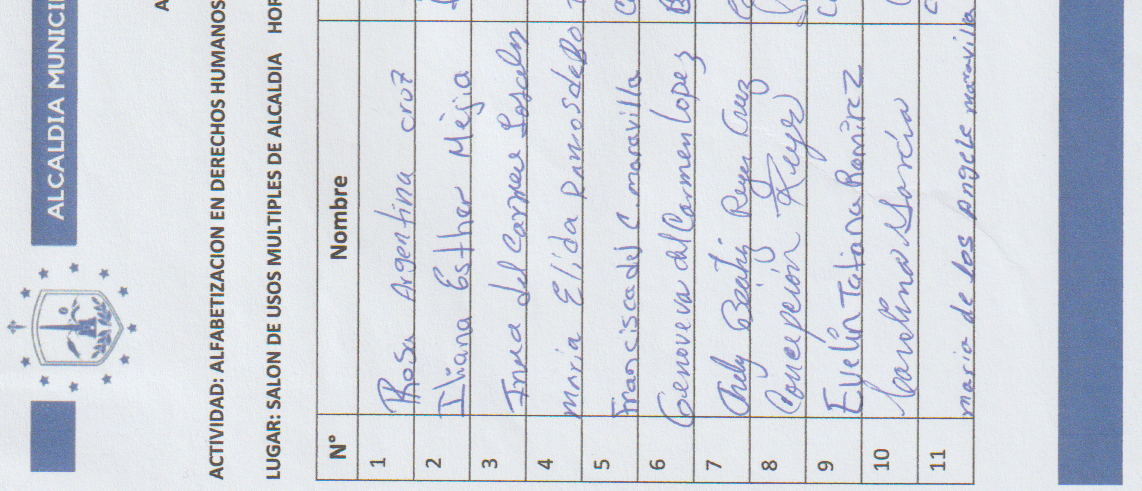 ALCALDIA MUNICI
A
ACTIVIDAD: ALFABETIZACION EN DERECHOS HUMANOS
LUGAR: SALON DE USOS MULTIPLES DE ALCALDIA HOR
N° Nombre
1 Rosa Argentina cruz
2 Iliana Esther Mejia
3 Irma del Carmen
4 maria Elida Ramos de
5 Francisca del C. maravilla
6 Genoveva del Carmen Lopez
7 Beatriz Reyes Cruz
8 Concepción Reyes
9 Evelin Tatiana Ramirez
10 Carolina Garcia
11 maria de los angeles maravilla